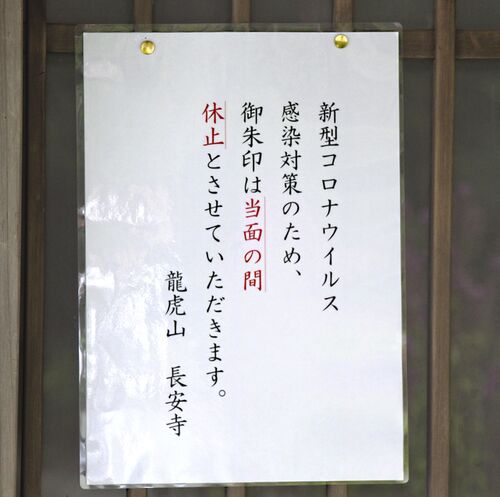 新型コロナウイルス
感染対策のため、
御朱印は当面の間
休止とさせていただきます。
龍虎山 長安寺